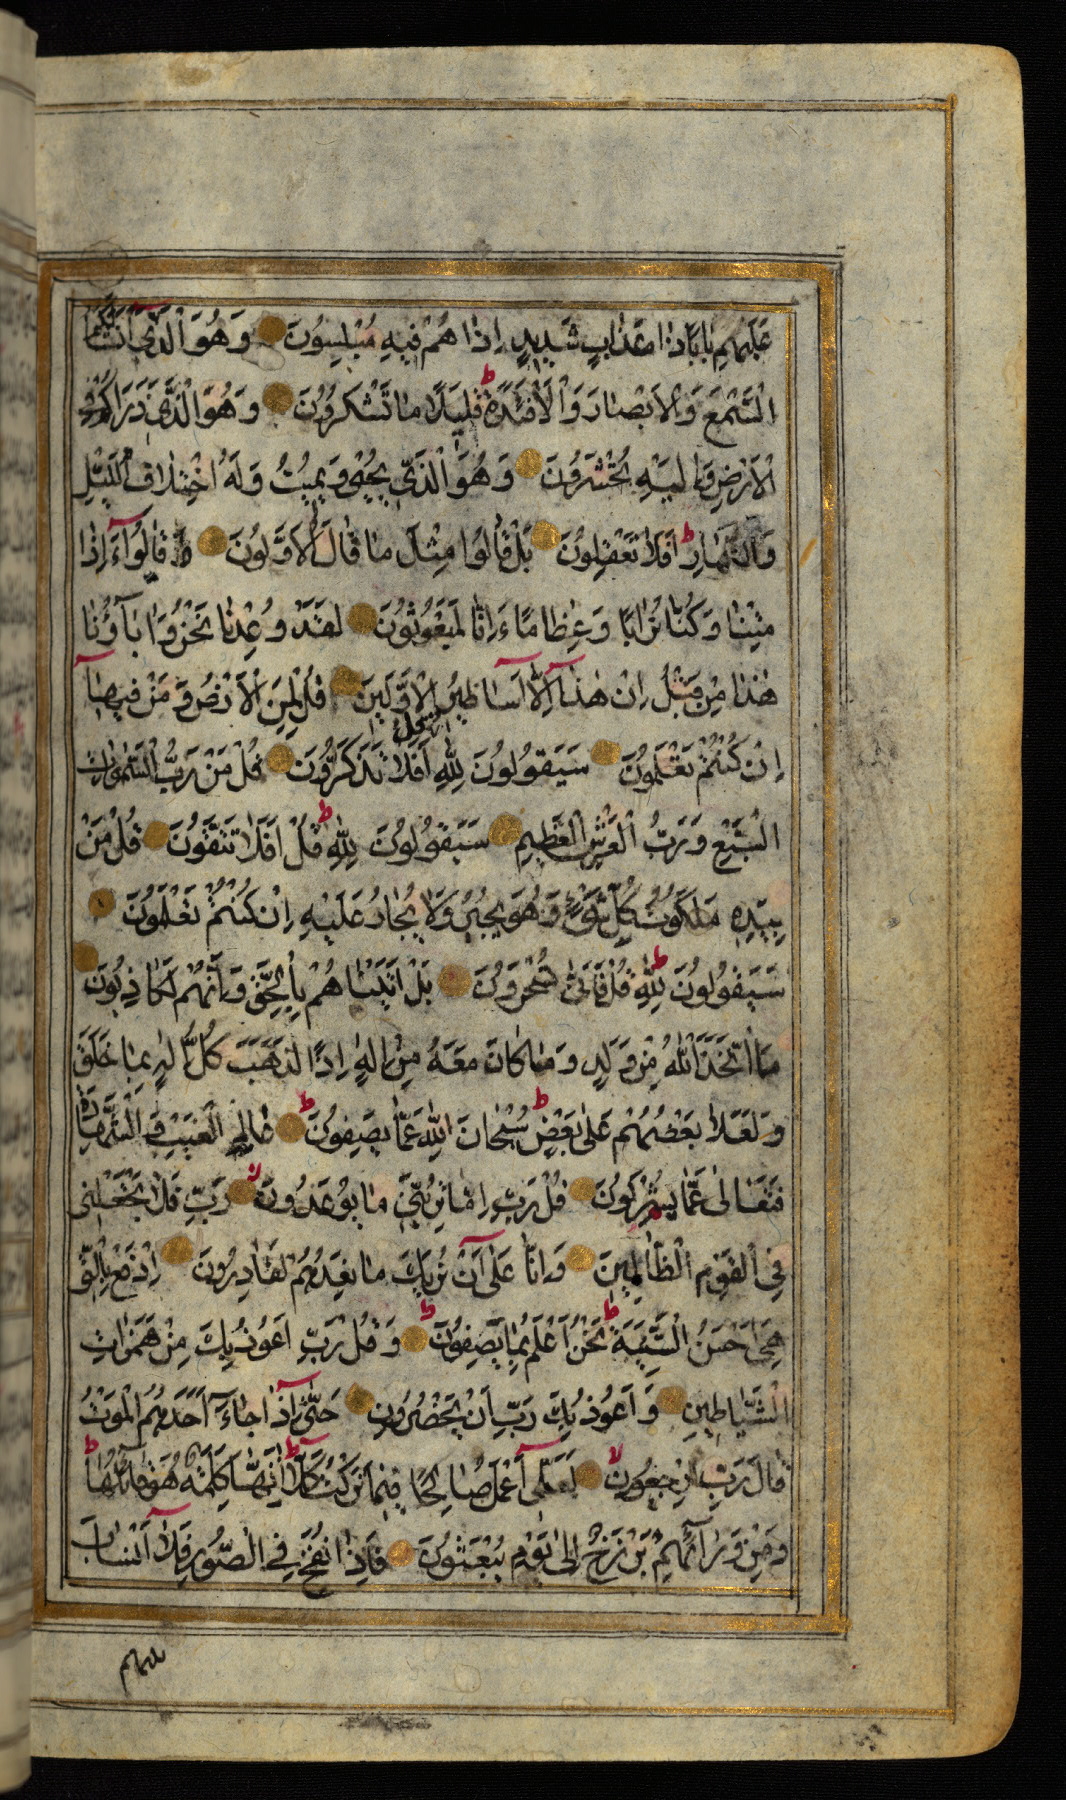 عَلَيْهِمْ بَابًا ذَا عَذَابٍ شَدِيدٍ إِذَا هُمْ فِيهِ مُبْلِسُونَ وَهُوَ الَّذِي أَنْشَأَ لَكُمُ
السَّمْعَ وَالْأَبْصَارَ وَالْأَفْئِدَةَ ط قَلِيلًا مَا تَشْكُرُونَ وَهُوَ الَّذِي ذَرَأَكُمْ فِي
الْأَرْضِ وَإِلَيْهِ تُحْشَرُونَ وَهُوَ الَّذِي يُحْيِي وَيُمِيتُ وَلَهُ اخْتِلَافُ اللَّيْلِ
وَالنَّهَارِ ط أَفَلَا تَعْقِلُونَ بَلْ قَالُوا مِثْلَ مَا قَالَ الْأَوَّلُونَ قَالُوا ءَإِذَا
مِتْنَا وَكُنَّا تُرَابًا وَعِظَامًا ءَإِنَّا لَمَبْعُوثُونَ لَقَدْ وُعِدْنَا نَحْنُ وَآبَاؤُنَا
هٰذَا مِنْ قَبْلُ إِنْ هٰذَا إِلَّا أَسَاطِيرُ الْأَوَّلِينَ قُلْ لِمَنِ الْأَرْضُ وَمَنْ فِيهَا
إِنْ كُنْتُمْ تَعْلَمُونَ سَيَقُولُونَ لِلّٰهِ قُلْ أَفَلَا تَذَكَّرُونَ قُلْ مَنْ رَبُّ السَّمٰوَاتِ
السَّبْعِ وَرَبُّ الْعَرْشِ الْعَظِيمِ سَيَقُولُونَ لِلّٰهِ ط قُلْ أَفَلَا تَتَّقُونَ قُلْ مَنْ
بِيَدِهِ مَلَكُوتُ كُلِّ شَيْءٍ وَهُوَ يُجِيرُ وَلَا يُجَارُ عَلَيْهِ إِنْ كُنْتُمْ تَعْلَمُونَ
سَيَقُولُونَ لِلّٰهِ ط قُلْ فَأَنَّىٰ تُسْحَرُونَ بَلْ أَتَيْنَاهُمْ بِالْحَقِّ وَإِنَّهُمْ لَكَاذِبُونَ
مَا اتَّخَذَ اللّٰهُ مِنْ وَلَدٍ وَمَا كَانَ مَعَهُ مِنْ إِلٰهٍ إِذًا لَذَهَبَ كُلُّ إِلٰهٍ بِمَا خَلَقَ
وَلَعَلَا بَعْضُهُمْ عَلَىٰ بَعْضٍ ط سُبْحَانَ اللّٰهِ عَمَّا يَصِفُونَ ط عَالِمِ الْغَيْبِ وَالشَّهَادَةِ
فَتَعَالَىٰ عَمَّا يُشْرِكُونَ قُلْ رَبِّ إِمَّا تُرِيَنِّي مَا يُوعَدُونَ لا رَبِّ فَلَا تَجْعَلْنِي
فِي الْقَوْمِ الظَّالِمِينَ وَإِنَّا عَلَىٰ أَنْ نُرِيَكَ مَا نَعِدُهُمْ لَقَادِرُونَ ادْفَعْ بِالَّتِي
هِيَ أَحْسَنُ السَّيِّئَةَ ط نَحْنُ أَعْلَمُ بِمَا يَصِفُونَ ط وَقُلْ رَبِّ أَعُوذُ بِكَ مِنْ هَمَزَاتِ
الشَّيَاطِينِ وَأَعُوذُ بِكَ رَبِّ أَنْ يَحْضُرُونِ حَتَّىٰ إِذَا جَاءَ أَحَدَهُمُ الْمَوْتُ
قَالَ رَبِّ ارْجِعُونِ لا لَعَلِّي أَعْمَلُ صَالِحًا فِيمَا تَرَكْتُ كَلَّا ط إِنَّهَا كَلِمَةٌ هُوَ قَائِلُهَا ط
وَمِنْ وَرَائِهِمْ بَرْزَخٌ إِلَىٰ يَوْمِ يُبْعَثُونَ فَإِذَا نُفِخَ فِي الصُّورِ فَلَا أَنْسَابَ
بينهم